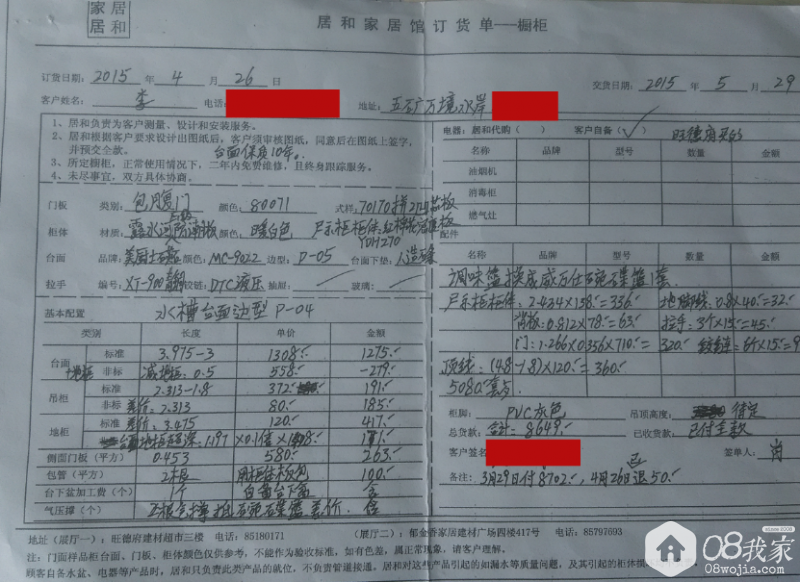 家居
居和
居和家居馆订货单---橱柜
订货日期：2015 年 4 月 26 日
交货日期：2015 年 5 月 29
客户姓名：李 电话： 地址：五矿万境水岸
1、居和负责为客户测量、设计和安装服务。
2、居和根据客户要求设计出图纸后，客户须审核图纸，同意后在图纸上签字，
并预交全款。 台面保质10年。
3、所定橱柜，正常使用情况下，二年内免费维修，且终身跟踪服务。
4、未尽事宜，双方具体协商。
电器：居和代购（ ） 客户自备（✓）
名称 品牌 型号 数量 金额
油烟机
消毒柜
燃气灶
门板 类别：包腹门 颜色：80071 式样：70170拼
柜体 材质：露水河防潮板 颜色：暖白色
YDH270
台面 品牌：美厨士石 颜色：MC-9022 边型：D-05 台面下垫：人造石
拉手 编号：XT-900 铰链：DTC液压 抽屉： 玻璃：
水槽台面边型 P-04
基本配置
类别 长度 单价 金额
台面 标准 3.975-3 1308.- 1275.-
地柜 非标 减地柜：0.5 558.- -279.-
吊柜 标准 2.313-1.8 372.- 191.-
非标 差价：2.313 80.- 185.-
地柜 标准 差价：3.475 120.- 417.-
侧面门板（平方） 0.453 580.- 263.-
包管（平方） 2根 用柜体板包 100.-
台下盆加工费（个） 1个 自备台下盆 含
气压撑（个）
配件
名称 品牌 型号 数量 金额
调味篮换成威万仕碗碟篮1套
尸示柜柜体：2.434×158.-=356.- 地脚线：0.8×40.-=32.-
背板：0.812×78.-=63.- 拉手：3个×15.-=45.-
门：1.266×0.356×710.-=320.- 铰链：6个×15.-=9
顶线：(4.8-1.8)×120.-=360.-
5080.-
柜脚：PVC灰色 吊顶高度：待定
总货款：合计：8649.- 已收货款：已付全款
客户签名： 签单人：肖
备注：3月29日付8702.-，4月26日已退50.-
地址（展厅一）：旺德府建材超市三楼 电话：85180171 （展厅二）：郁金香家居建材广场四楼417号 电话：85797693
注：门面样品柜台面、门板、柜体颜色仅供参考，不能作为验收标准，如有色差，属正常现象，请客户理解。
顾客自备水盆、电器等产品时，居和只负责此类产品的就位，不负责管道接通，居和对这些产品引起的如漏水等质量问题，及其引起的柜体
08我家
08wojia.com